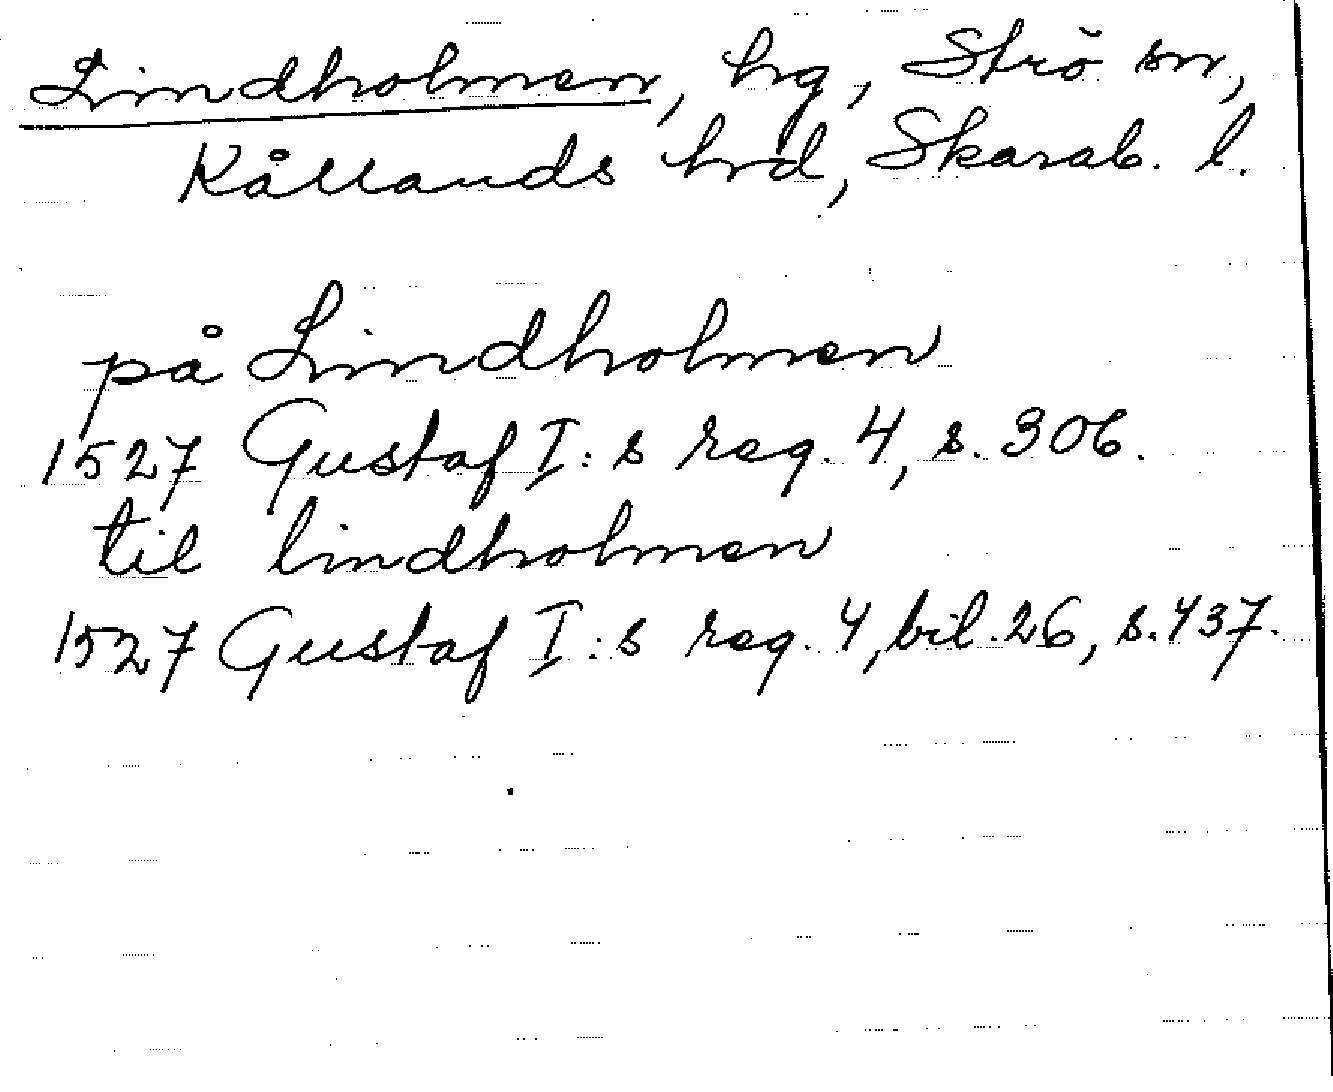 Lindholmen, hg, Strö sn,
Kållands hrd, Skarab. l.
på Lindholmen
1527 Gustaf I:s reg. 4, s. 306.
til lindholmen
1527 Gustaf I:s reg. 4, bil. 26, s. 437.